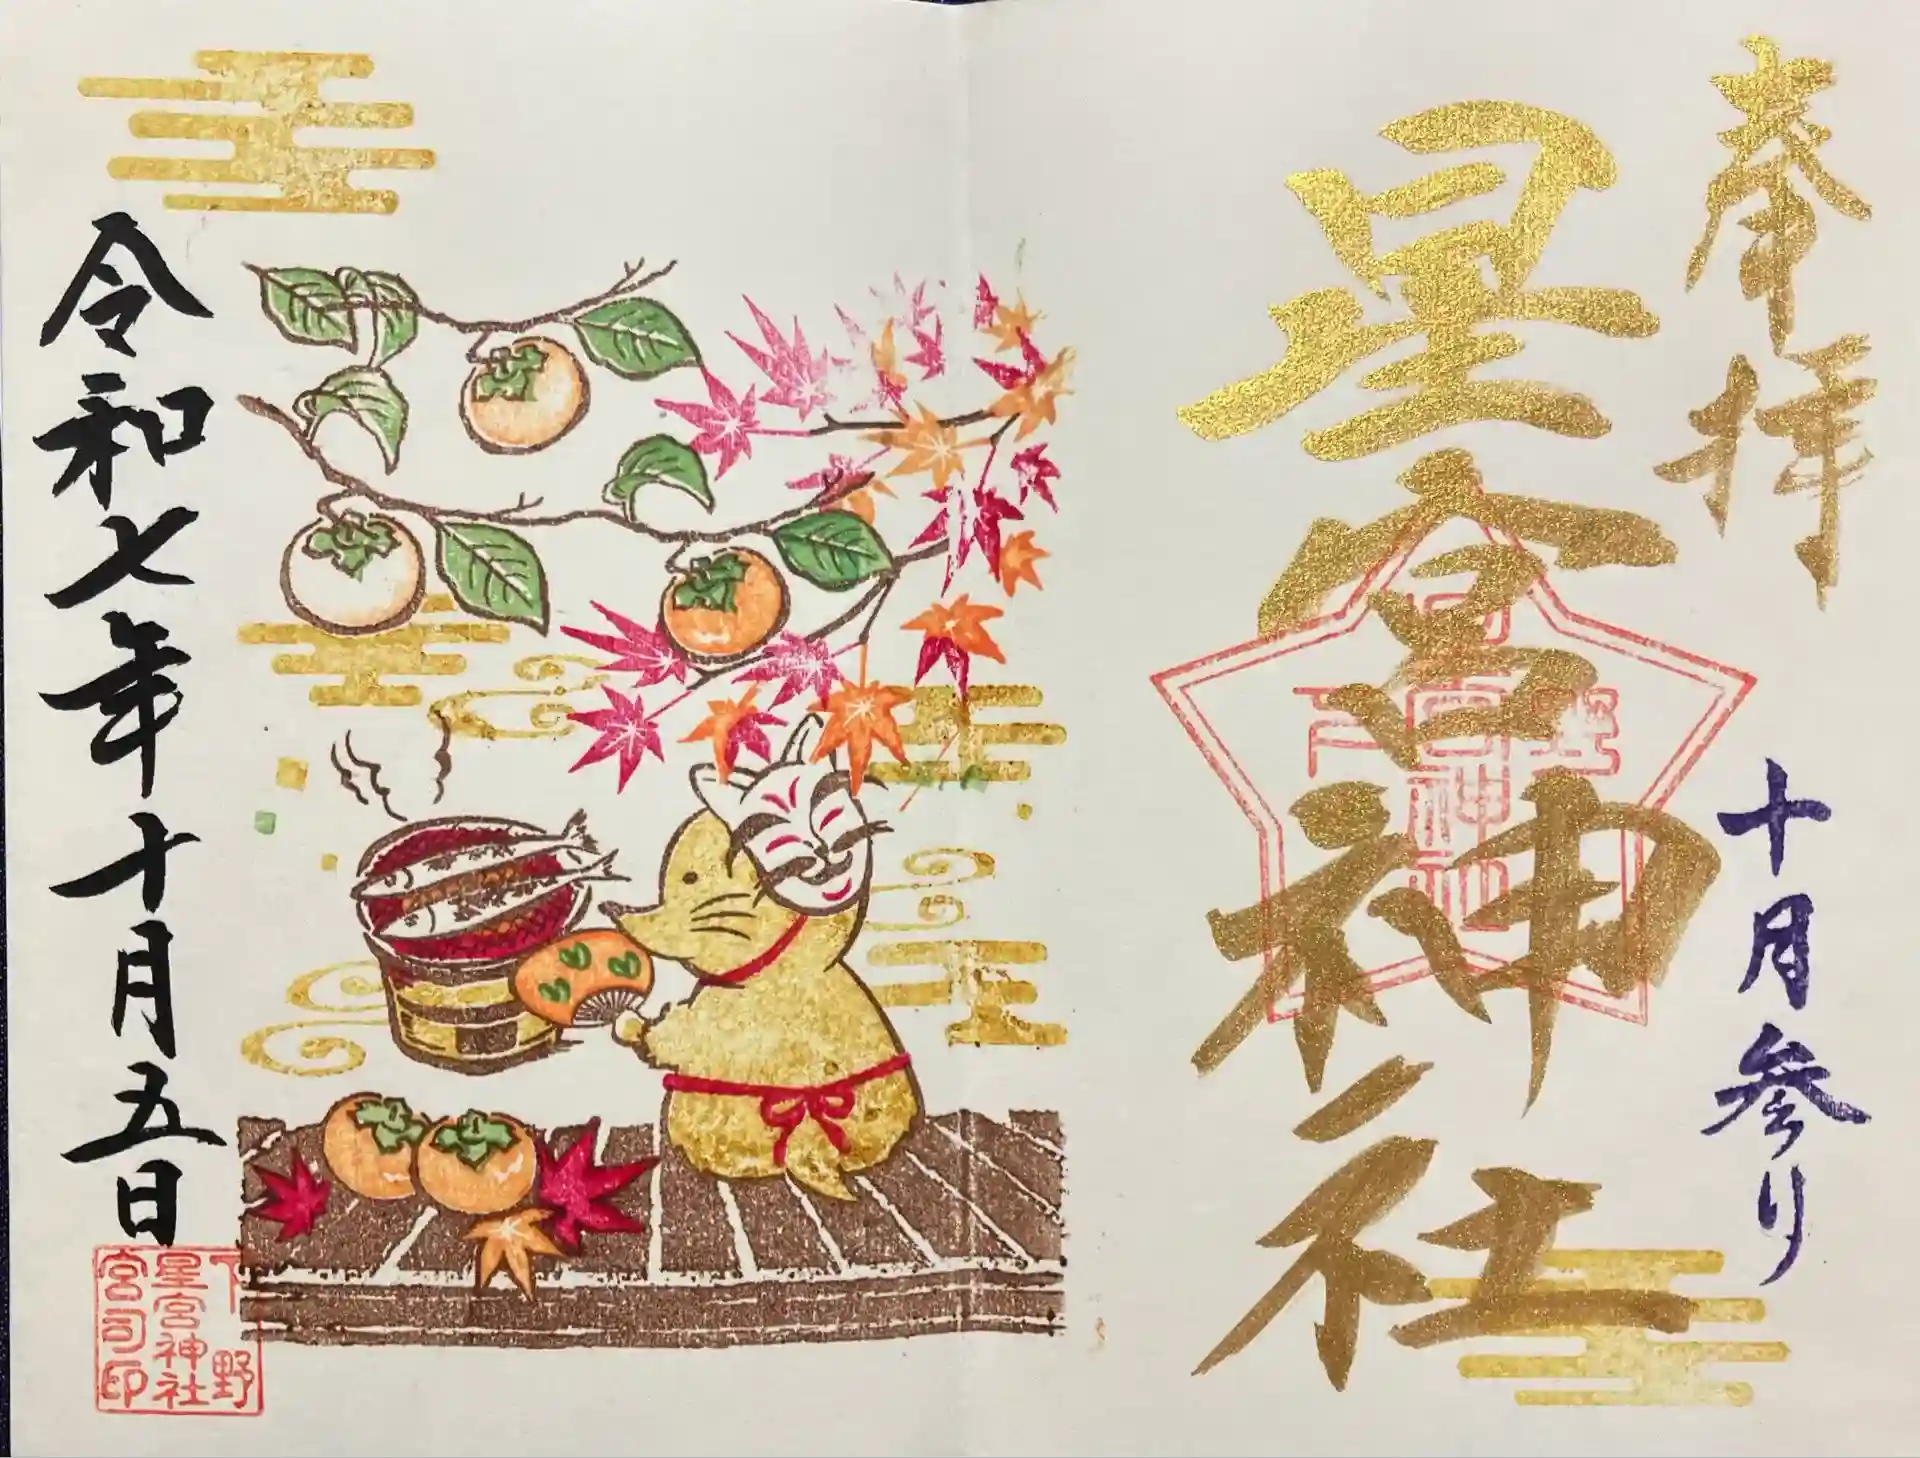 奉拝
十月参り
星宮神社
下野
星宮神社
令和七年十月五日
下野
星宮神社
宮司印